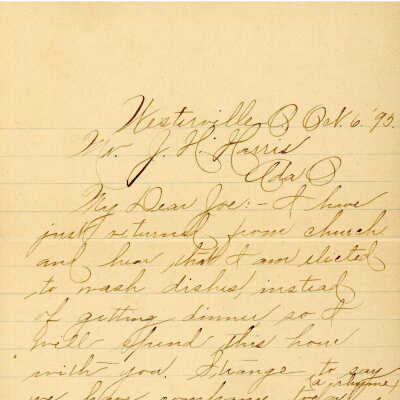 Westerville O. Oct. 6. '95.
Mr. J. H. Harris
Ada O
My Dear Joe:- I have
just returned from church
and hear that I am elected
to wash dishes, instead
of getting dinner so I
will spend this hour
with you. Strange to say
(a rhyme)
we have company today